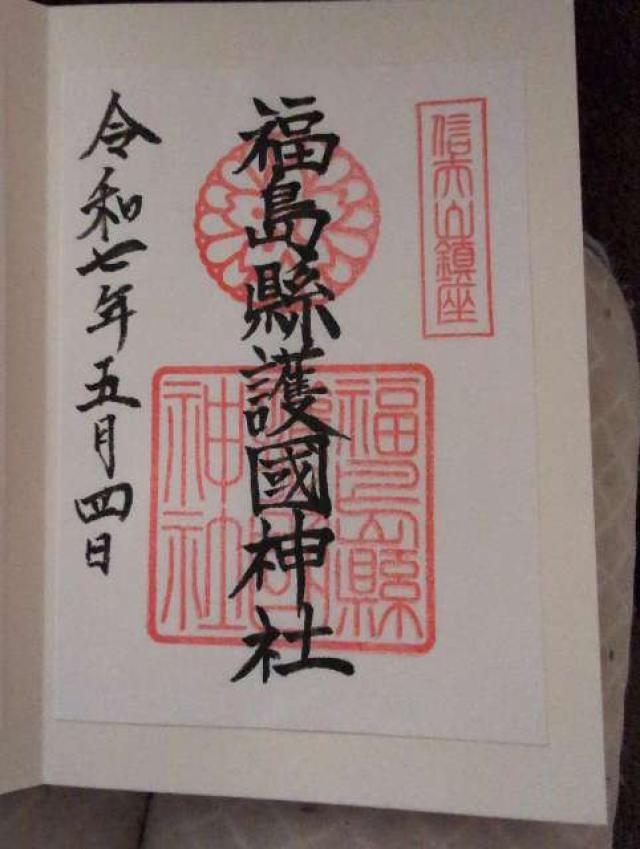 信夫山鎮座
福島縣護國神社
福島縣護國神社
令和七年五月四日